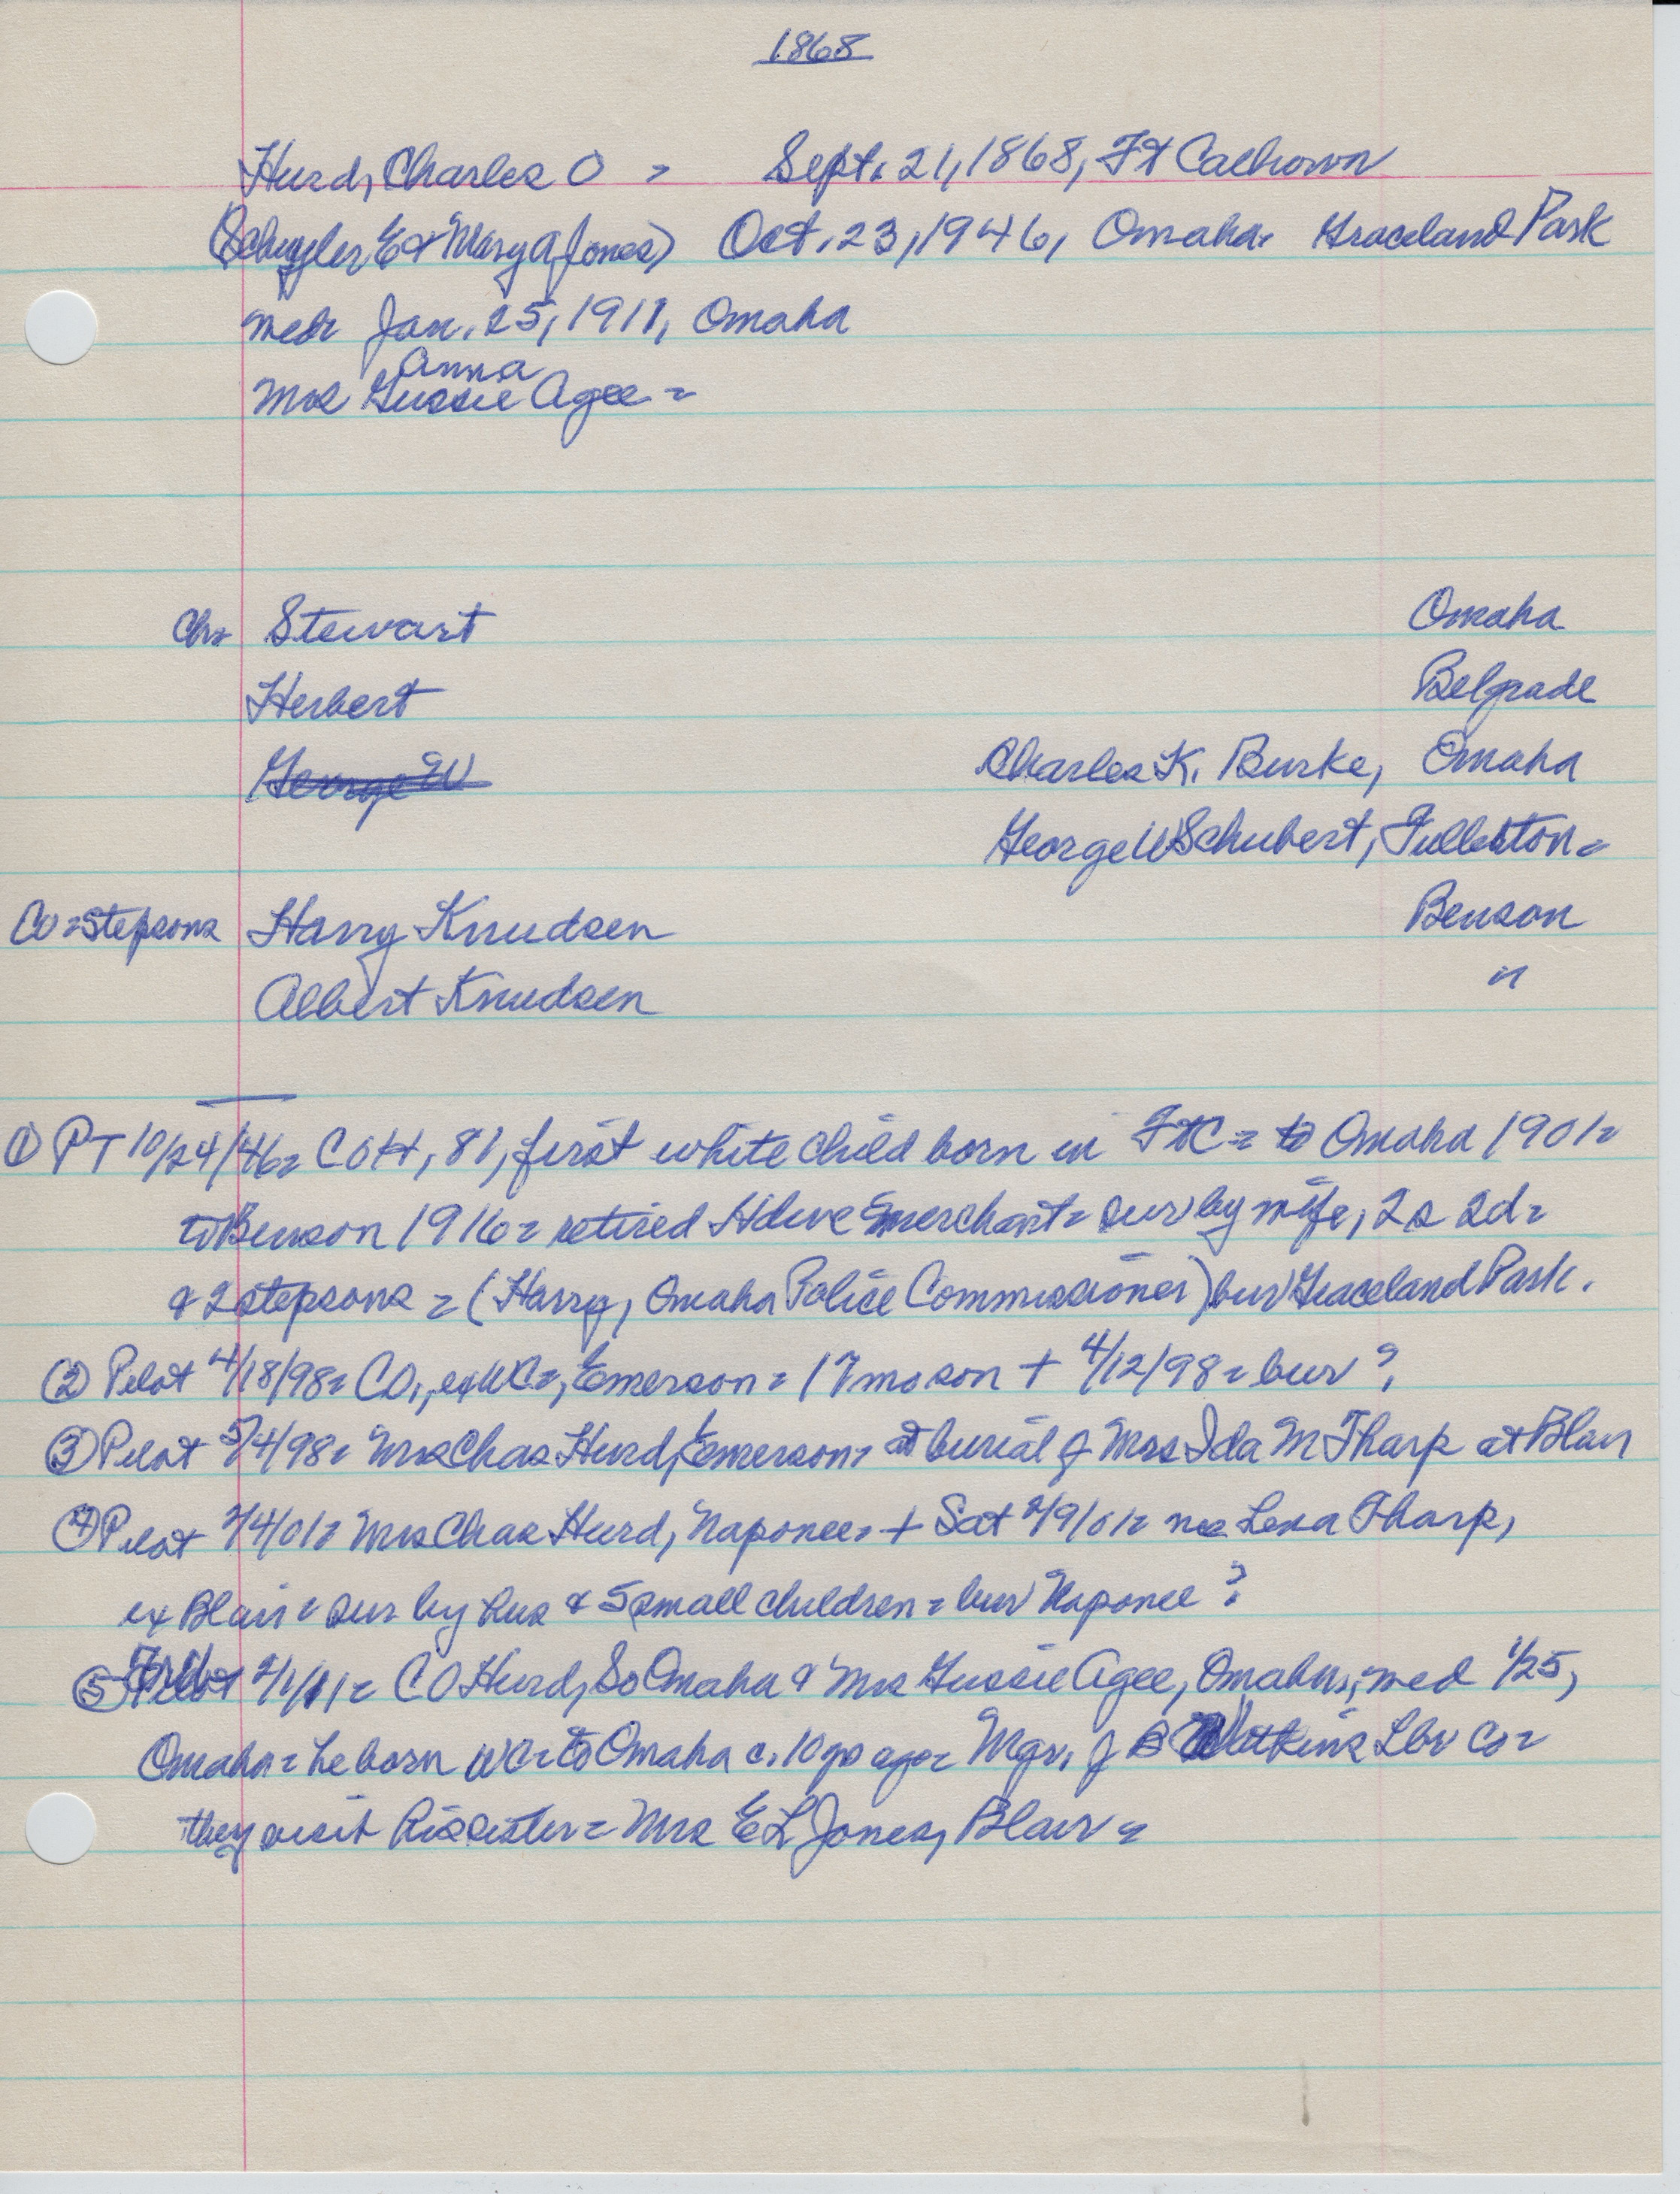 1868
Hurd, Charles O = Sept. 21, 1868, Ft Calhoun
(Schuyler E & Mary A Jones) Oct. 23, 1946, Omaha. Graceland Park
med= Jan. 25, 1911, Omaha
Anna
Mrs Gussie Agee =
Ch= Stewart Omaha
Herbert Belgrade
George W Charles K. Burke, Omaha
George W Schubert, Fullerton =
CO = Stepsons Harry Knudsen Benson
Albert Knudsen "
① PT 10/24/46= COH, 81, first white child born in FtC = to Omaha 1901=
to Benson 1916 = retired Hdwe merchant = sur by wife, 2s 2d =
& 2 stepsons = (Harry, Omaha Police Commissioner) bur Graceland Park.
② Pilot 4/18/98= CO, ex WC=, Emerson = 17 mo son + 4/12/98 = bur ?
③ Pilot 5/4/98= Mrs Chas Hurd, Emerson= at burial of Mrs Ida M Tharp at Blair
④ Pilot 2/4/01= Mrs Chas Hurd, Naponee= + Sat 2/9/01= nee Lena Tharp,
ex Blair = sur by hus & 5 small children = bur Naponee ?
⑤ 2/1/11= CO Hurd, So Omaha & Mrs Gussie Agee, Omaha, med 1/25,
Omaha = he born WC= to Omaha c. 10 yo ago = Mgr. of Watkins Lbr Co =
they visit his sister = Mrs E L Jones, Blair =